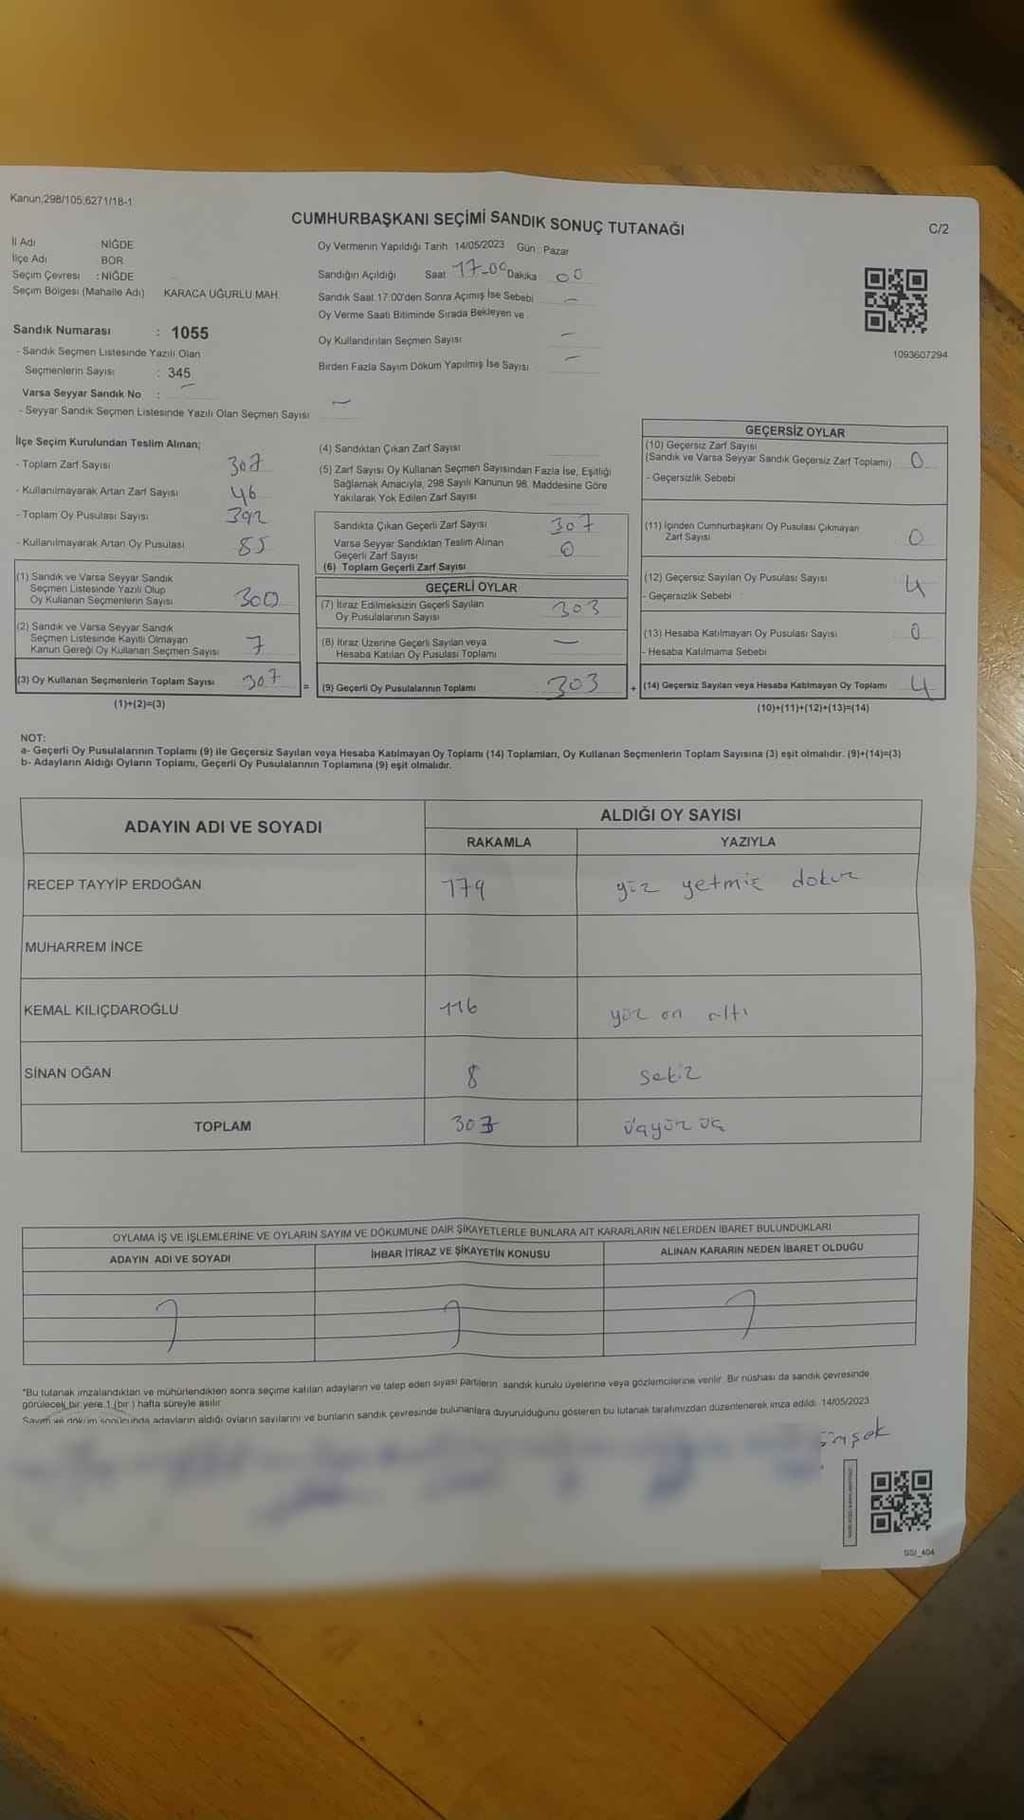 Kanun;298/105,6271/18-1
CUMHURBAŞKANI SEÇİMİ SANDIK SONUÇ TUTANAĞI
C/2
İl Adı NİĞDE
İlçe Adı BOR
Seçim Çevresi : NİĞDE
Seçim Bölgesi (Mahalle Adı) KARACA UĞURLU MAH.
Sandık Numarası : 1055
- Sandık Seçmen Listesinde Yazılı Olan
Seçmenlerin Sayısı : 345
Varsa Seyyar Sandık No : –
- Seyyar Sandık Seçmen Listesinde Yazılı Olan Seçmen Sayısı –
Oy Vermenin Yapıldığı Tarih 14/05/2023 Gün : Pazar
Sandığın Açıldığı Saat 17-00 Dakika 00
Sandık Saat 17:00'den Sonra Açımış İse Sebebi –
Oy Verme Saati Bitiminde Sırada Bekleyen ve
Oy Kullandırılan Seçmen Sayısı –
Birden Fazla Sayım Döküm Yapılmış İse Sayısı –
1093607294
İlçe Seçim Kurulundan Teslim Alınan;
- Toplam Zarf Sayısı 307
- Kullanılmayarak Artan Zarf Sayısı 46
- Toplam Oy Pusulası Sayısı 392
- Kullanılmayarak Artan Oy Pusulası 85
(1) Sandık ve Varsa Seyyar Sandık
Seçmen Listesinde Yazılı Olup
Oy Kullanan Seçmenlerin Sayısı 300
(2) Sandık ve Varsa Seyyar Sandık
Seçmen Listesinde Kayıtlı Olmayan
Kanun Gereği Oy Kullanan Seçmen Sayısı 7
(3) Oy Kullanan Seçmenlerin Toplam Sayısı 307
(1)+(2)=(3)
(4) Sandıktan Çıkan Zarf Sayısı
(5) Zarf Sayısı Oy Kullanan Seçmen Sayısından Fazla İse, Eşitliği
Sağlamak Amacıyla, 298 Sayılı Kanunun 98. Maddesine Göre
Yakılarak Yok Edilen Zarf Sayısı
Sandıkta Çıkan Geçerli Zarf Sayısı 307
Varsa Seyyar Sandıktan Teslim Alınan
Geçerli Zarf Sayısı 0
(6) Toplam Geçerli Zarf Sayısı
GEÇERLİ OYLAR
(7) İtiraz Edilmeksizin Geçerli Sayılan
Oy Pusulalarının Sayısı 303
(8) İtiraz Üzerine Geçerli Sayılan veya
Hesaba Katılan Oy Pusulası Toplamı –
= (9) Geçerli Oy Pusulalarının Toplamı 303
GEÇERSİZ OYLAR
(10) Geçersiz Zarf Sayısı
(Sandık ve Varsa Seyyar Sandık Geçersiz Zarf Toplamı) 0
- Geçersizlik Sebebi
(11) İçinden Cumhurbaşkanı Oy Pusulası Çıkmayan
Zarf Sayısı 0
(12) Geçersiz Sayılan Oy Pusulası Sayısı 4
- Geçersizlik Sebebi
(13) Hesaba Katılmayan Oy Pusulası Sayısı 0
- Hesaba Katılmama Sebebi
+ (14) Geçersiz Sayılan veya Hesaba Katılmayan Oy Toplamı 4
(10)+(11)+(12)+(13)=(14)
NOT:
a- Geçerli Oy Pusulalarının Toplamı (9) ile Geçersiz Sayılan veya Hesaba Katılmayan Oy Toplamı (14) Toplamları, Oy Kullanan Seçmenlerin Toplam Sayısına (3) eşit olmalıdır. (9)+(14)=(3)
b- Adayların Aldığı Oyların Toplamı, Geçerli Oy Pusulalarının Toplamına (9) eşit olmalıdır.
ADAYIN ADI VE SOYADI ALDIĞI OY SAYISI
RAKAMLA YAZIYLA
RECEP TAYYİP ERDOĞAN 179 yüz yetmiş dokuz
MUHARREM İNCE
KEMAL KILIÇDAROĞLU 116 yüz on altı
SİNAN OĞAN 8 sekiz
TOPLAM 303 üçyüz üç
OYLAMA İŞ VE İŞLEMLERİNE VE OYLARIN SAYIM VE DÖKÜMÜNE DAİR ŞİKAYETLERLE BUNLARA AİT KARARLARIN NELERDEN İBARET BULUNDUKLARI
ADAYIN ADI VE SOYADI İHBAR İTİRAZ VE ŞİKAYETİN KONUSU ALINAN KARARIN NEDEN İBARET OLDUĞU
*Bu tutanak imzalandıktan ve mühürlendikten sonra seçime katılan adayların ve talep eden siyasi partilerin sandık kurulu üyelerine veya gözlemcilerine verilir. Bir nüshası da sandık çevresinde
görülecek bir yere 1 (bir) hafta süreyle asılır.
Sayım ve döküm sonucunda adayların aldığı oyların sayılarını ve bunların sandık çevresinde bulunanlara duyurulduğunu gösteren bu tutanak tarafımızdan düzenlenerek imza edildi. 14/05/2023
SSI_404